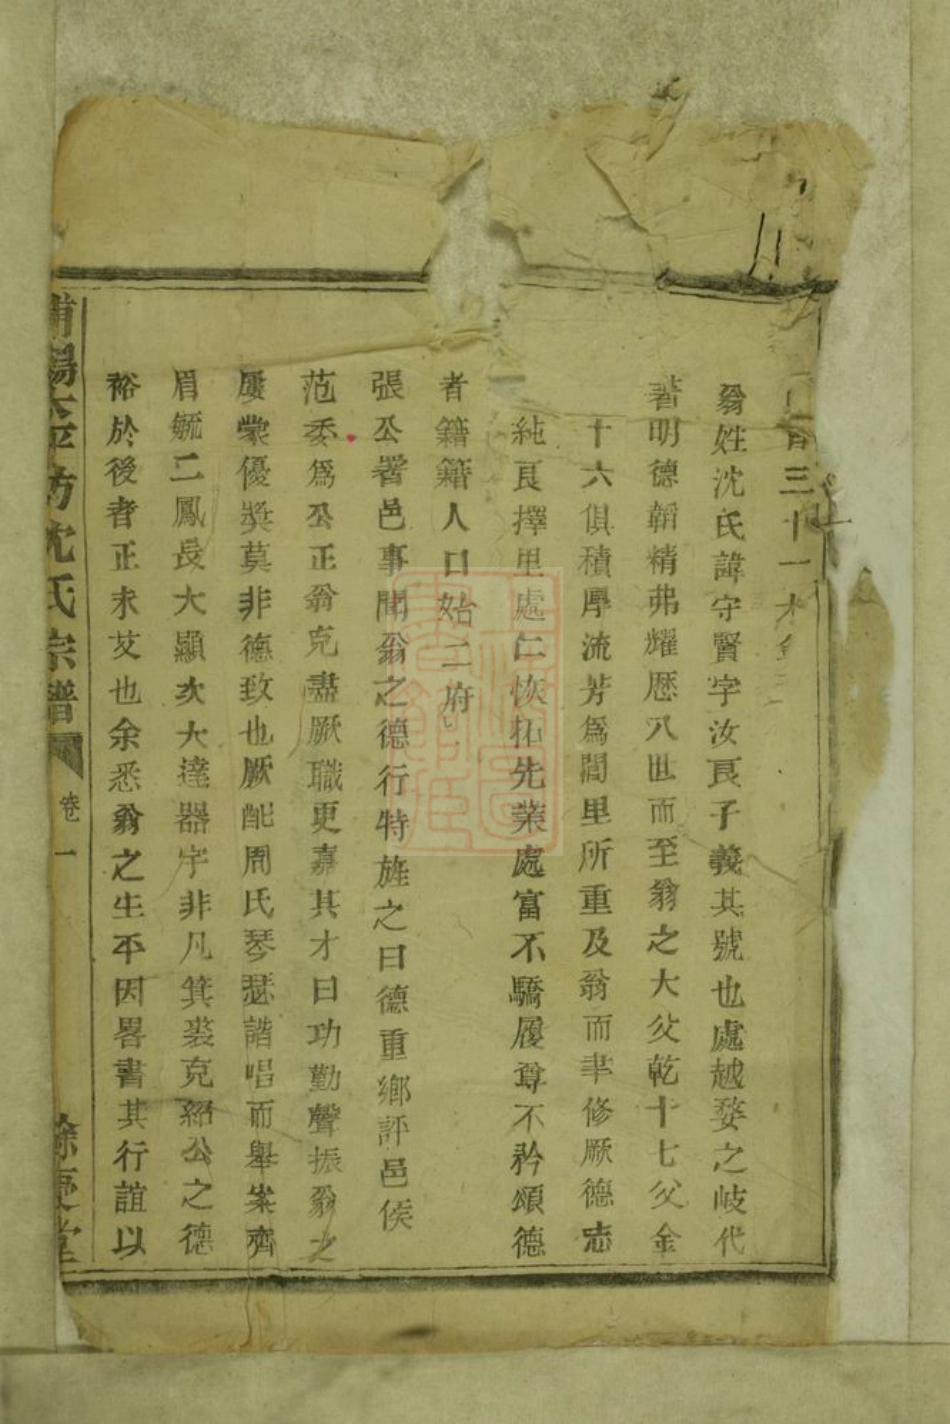 三十一
翁姓沈氏諱守賢字汝良子義其號也處越婺之岐代
著明德韜精弗耀歷八世而至翁之大父乾十七父金
十六俱積厚流芳為閭里所重及翁而聿修厥德志
純良擇里處仁恢拓先業處富不驕履尊不矜頌德
者籍籍人口始二府
張公署邑事聞翁之德行特旌之曰德重鄉評邑侯
范委為公正翁克盡厥職更嘉其才曰功勤聲振翁之
屢蒙優獎莫非德致也厥配周氏琴瑟諧唱而舉案齊
眉毓二鳳長大顯次大達器宇非凡箕裘克紹公之德
裕於後者正未艾也余悉翁之生平因畧書其行誼以
浦陽太平坊沈氏宗譜 卷一 餘慶堂